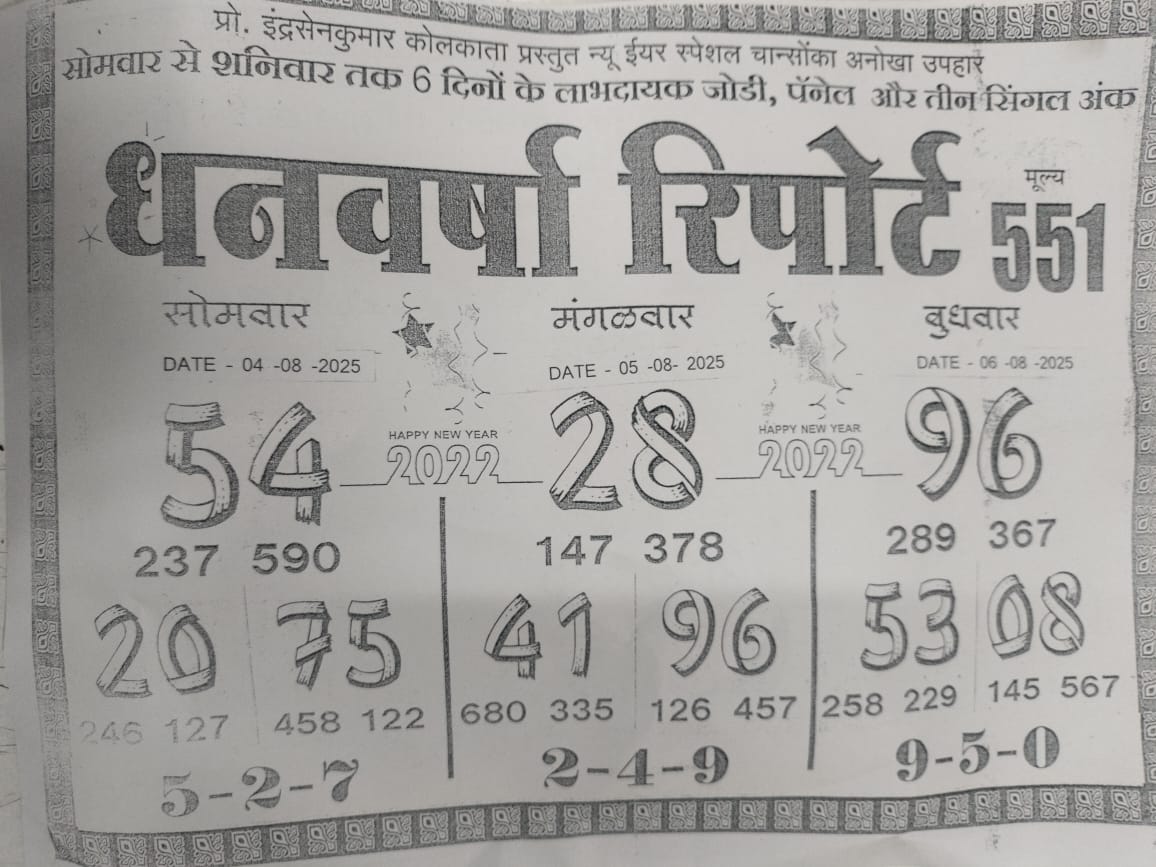 प्रो. इंद्रसेनकुमार कोलकाता प्रस्तुत न्यू ईयर स्पेशल चान्सोंका अनोखा उपहार
सोमवार से शनिवार तक 6 दिनों के लाभदायक जोडी, पॅनेल और तीन सिंगल अंक
धनवर्षा रिपोर्ट मूल्य 551
सोमवार मंगळवार बुधवार
DATE - 04 -08 -2025 DATE - 05 -08- 2025 DATE - 06 -08 -2025
54 HAPPY NEW YEAR 2022 28 HAPPY NEW YEAR 2022 96
237 590 147 378 289 367
20 75 41 96 53 08
246 127 458 122 680 335 126 457 258 229 145 567
5-2-7 2-4-9 9-5-0